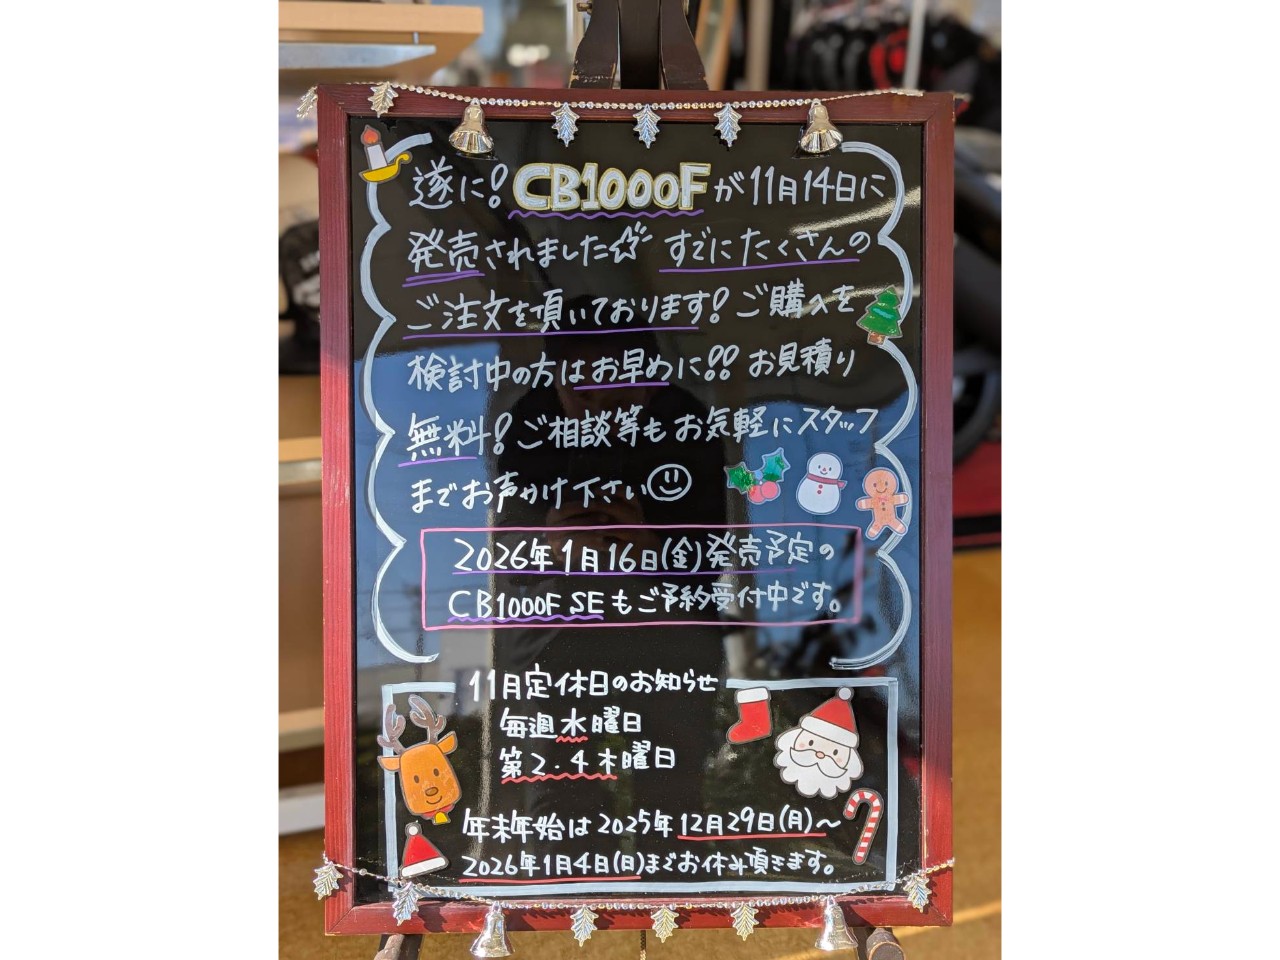 遂に!CB1000Fが11月14日に
発売されました☆ すでにたくさんの
ご注文を頂いております!ご購入を
検討中の方はお早めに!!お見積り
無料!ご相談等もお気軽にスタッフ
までお声かけ下さい
2026年1月16日(金)発売予定の
CB1000F SEもご予約受付中です。
11月定休日のお知らせ
毎週水曜日
第2.4木曜日
年末年始は2025年12月29日(月)～
2026年1月4日(日)までお休み頂きます。